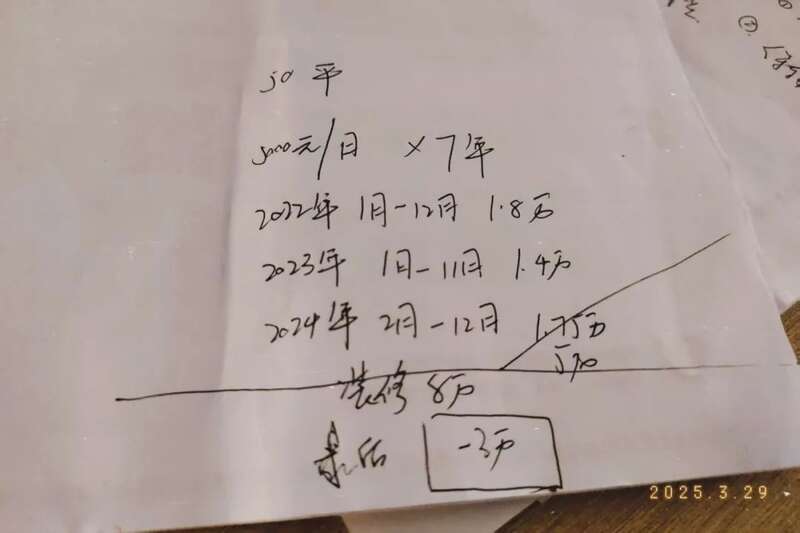 50平
5000元/月 ×7年
2022年 1月-12月 1.8万
2023年 1月-11月 1.4万
2024年 2月-12月 1.75万
装修 8万
最后 -3万
2025.3.29